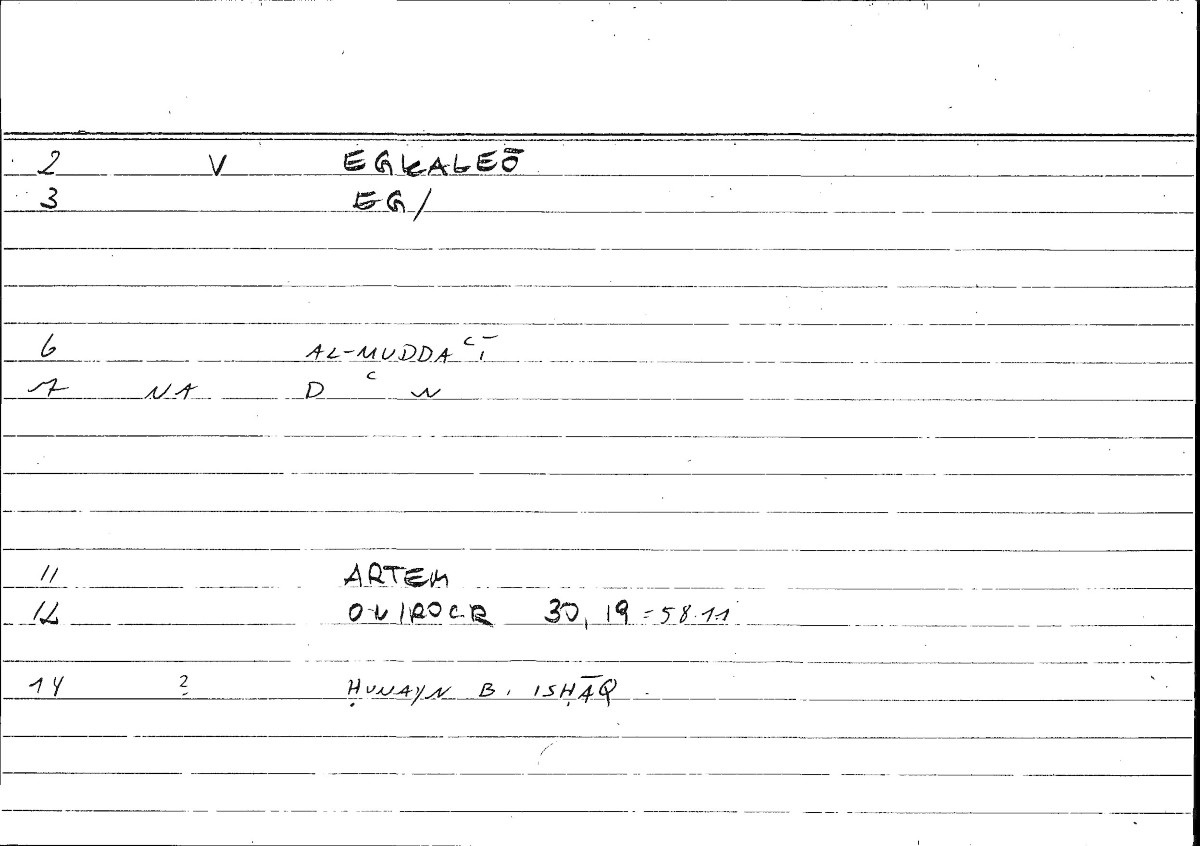 2 V EGKALEŌ
3 EG/
6 AL-MUDDAʿĪ
7 NA D ʿ W
11 ARTEM
12 ONIROCR 30, 19 = 58.11
14 ? ḤUNAYN B. ISḤĀQ